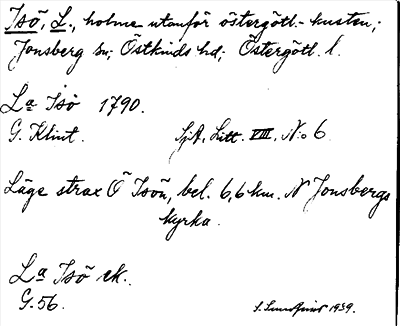 Isö, L., holme utanför östergötl.-kusten;
Jonsberg sn; Östkinds hd; Östergötl. l.
La Isö 1790.
G. Klint. SjA, Litt. VIII, N:o 6
Läge strax Ö Isön, bel. 6,6 km. N Jonsbergs
kyrka.
La Isö ek.
G. 56. 1939.